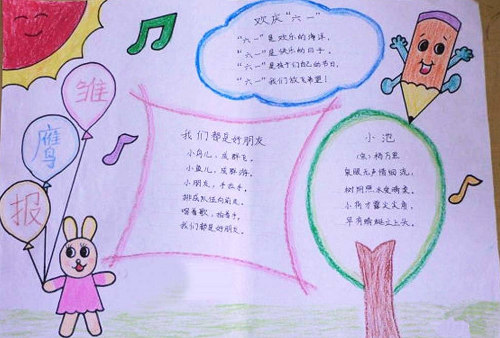 雏
鹰
报
欢庆"六一"
"六一"是欢乐的海洋,
"六一"是快乐的日子,
"六一"是孩子们自己的节日,
"六一"我们放飞希望!
我们都是好朋友
小鸟儿,成群飞,
小鱼儿,成群游,
小朋友,手拉手,
排成队伍向前走。
唱着歌,拍着手,
我们都是好朋友。
小池
(宋)杨万里
泉眼无声惜细流,
树阴照水爱晴柔。
小荷才露尖尖角,
早有蜻蜓立上头。